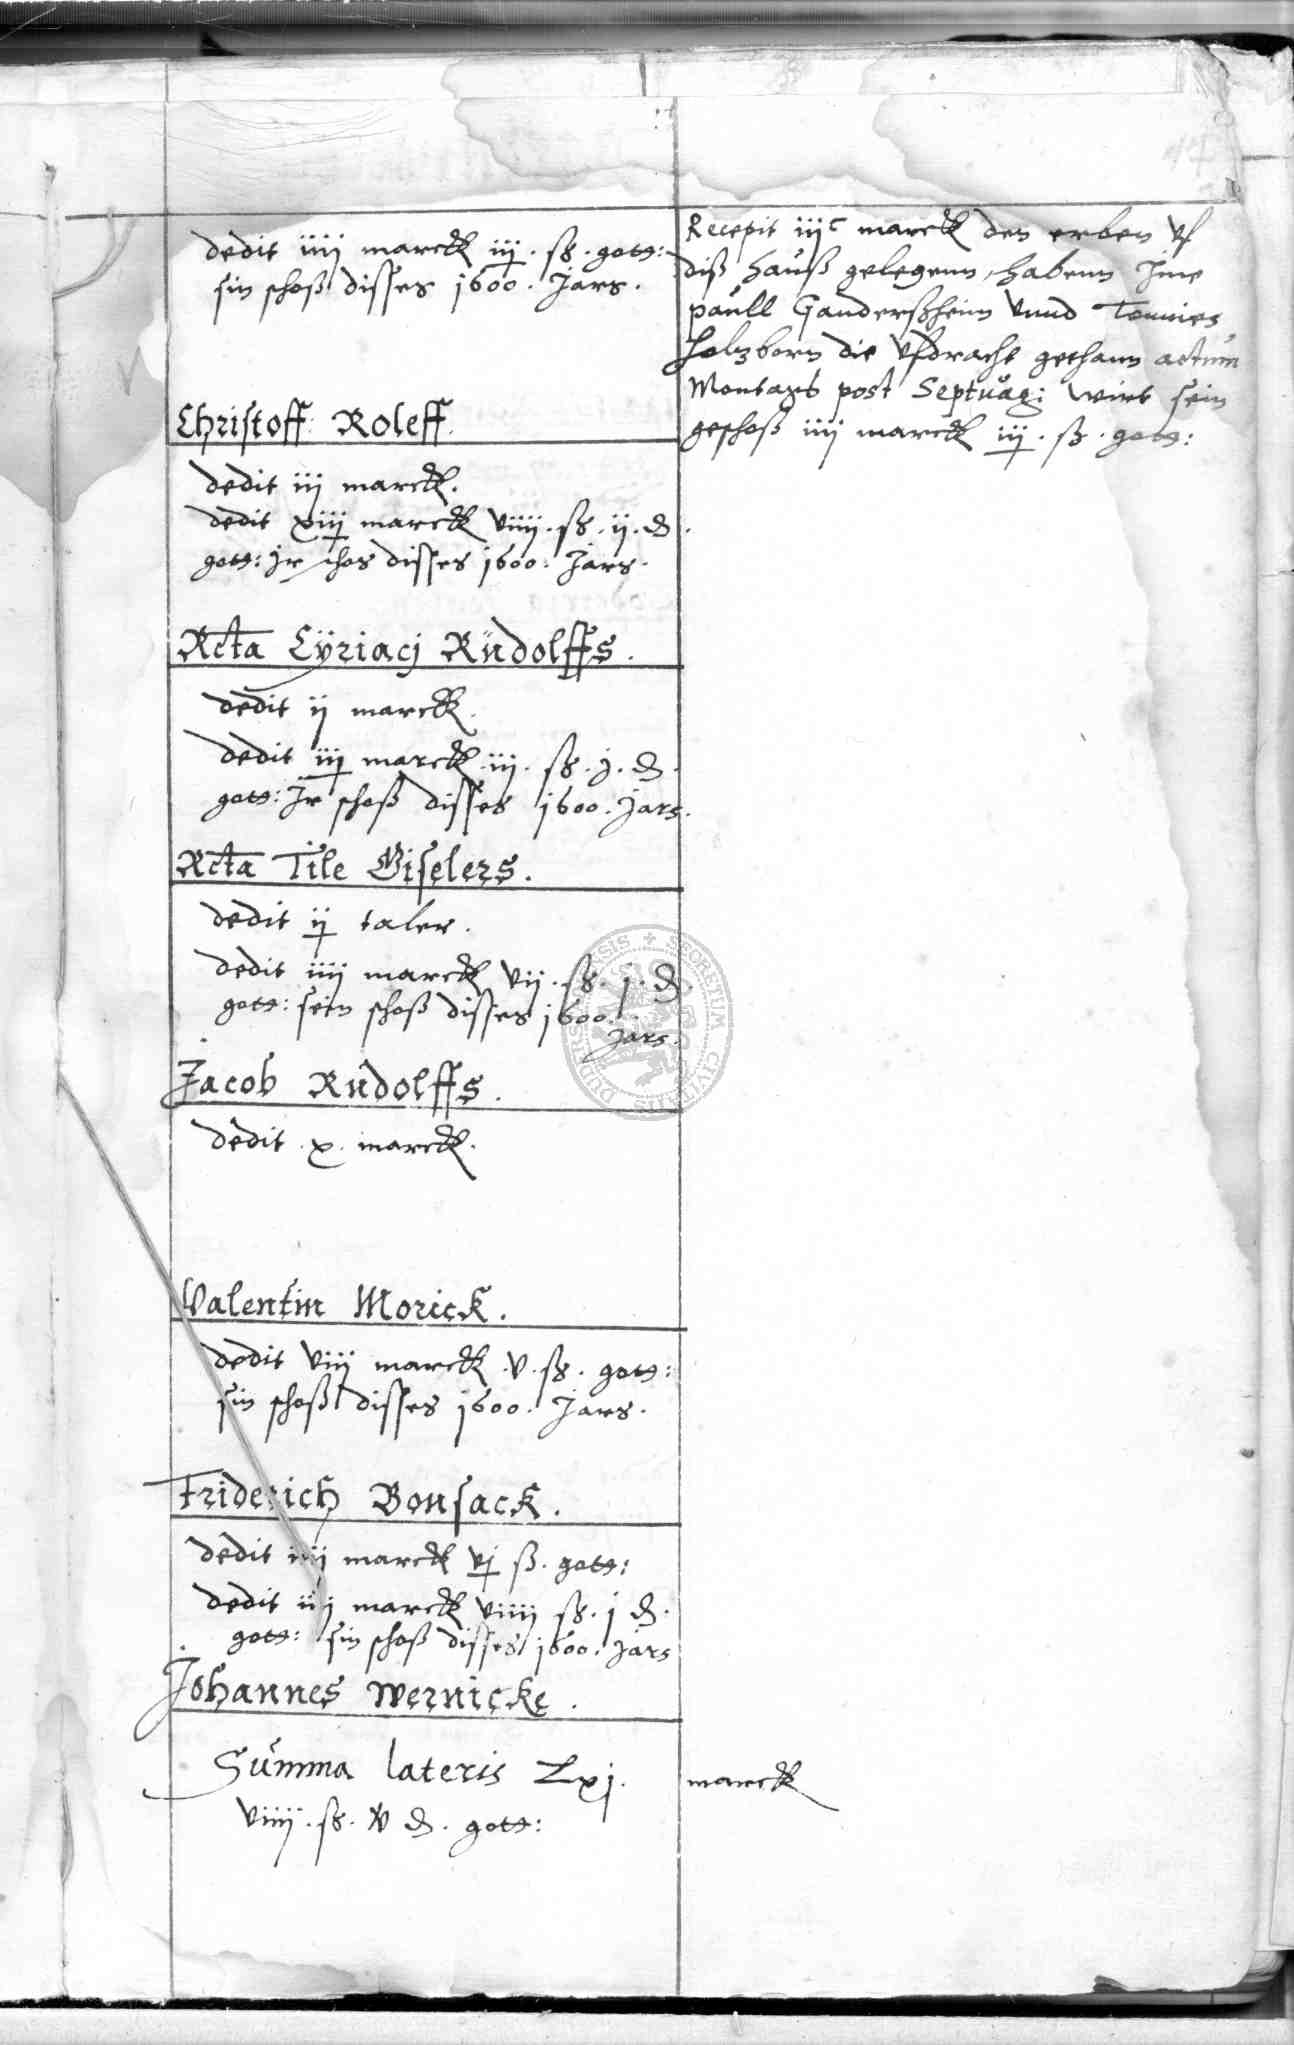 dedit iiij marck iij. ß. gots:
sin schoß disses 1600. Jars.
Recepit iijc marck den erben vf
diß hauß gelegenn, habenn Jme
paull Ganderßheim vnnd Tonnies
holzborn die vfdracht gethann actum
Montags post Septuagi wirt sein
geschoß iiij marck iij. ß. gots:
Christoff Roleff.
dedit iij marck.
dedit xiij marck viiij. ß. ij. d.
gots: Jr schos disses 1600. Jars.
Rcta Cÿriacj Rudolffs.
dedit ij marck.
dedit iij marck iij. ß. j. d.
gots: Jr schoß disses 1600. Jars.
Rcta Tile Giselers.
dedit ij taler.
dedit iiij marck vij. ß. j. d.
gots: sein schoß disses 1600.
Jars.
Jacob Rudolffs.
dedit x. marck.
Valentin Morick.
dedit viij marck v. ß. gots:
sin schoß disses 1600. Jars.
Friderich Bonsack.
dedit iiij marck vj ß. gots:
dedit iiij marck viiij ß. j d.
gots: sin schoß disses 1600. Jars
Johannes wernicke.
Summa lateris Lxj. marck
viiij. ß. v d. gots:
SECRETUM CIVITATIS